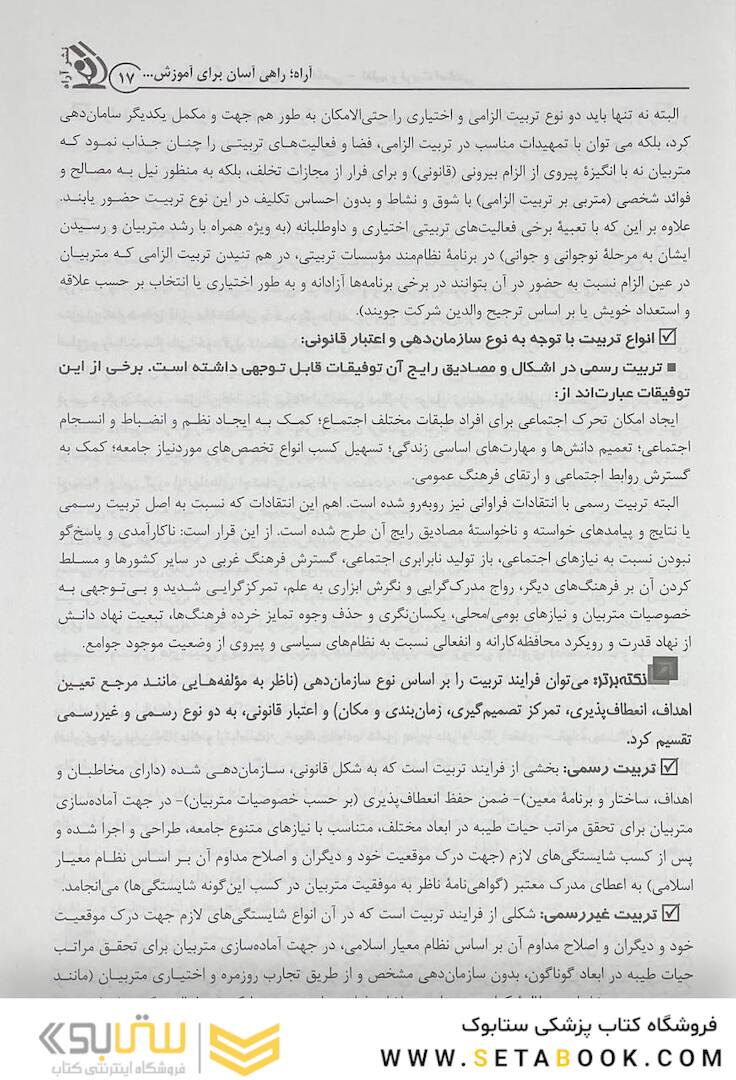 نشر آراه
۱۷
آراه؛ راهی آسان برای آموزش...
البته نه تنها باید دو نوع تربیت الزامی و اختیاری را حتی‌الامکان به طور هم جهت و مکمل یکدیگر سامان‌دهی
کرد، بلکه می توان با تمهیدات مناسب در تربیت الزامی، فضا و فعالیت‌های تربیتی را چنان جذاب نمود که
متربیان نه با انگیزهٔ پیروی از الزام بیرونی (قانونی) و برای فرار از مجازات تخلف، بلکه به منظور نیل به مصالح و
فوائد شخصی (متربی بر تربیت الزامی) با شوق و نشاط و بدون احساس تکلیف در این نوع تربیت حضور یابند.
علاوه بر این که با تعبیهٔ برخی فعالیت‌های تربیتی اختیاری و داوطلبانه (به ویژه همراه با رشد متربیان و رسیدن
ایشان به مرحلهٔ نوجوانی و جوانی) در برنامهٔ نظام‌مند مؤسسات تربیتی، در هم تنیدن تربیت الزامی که متربیان
در عین الزام نسبت به حضور در آن بتوانند در برخی برنامه‌ها آزادانه و به طور اختیاری یا انتخاب بر حسب علاقه
و استعداد خویش یا بر اساس ترجیح والدین شرکت جویند).
☑ انواع تربیت با توجه به نوع سازمان‌دهی و اعتبار قانونی:
■ تربیت رسمی در اشکال و مصادیق رایج آن توفیقات قابل توجهی داشته است. برخی از این
توفیقات عبارت‌اند از:
ایجاد امکان تحرک اجتماعی برای افراد طبقات مختلف اجتماع؛ کمک به ایجاد نظم و انضباط و انسجام
اجتماعی؛ تعمیم دانش‌ها و مهارت‌های اساسی زندگی؛ تسهیل کسب انواع تخصص‌های موردنیاز جامعه؛ کمک به
گسترش روابط اجتماعی و ارتقایِ فرهنگ عمومی.
البته تربیت رسمی با انتقادات فراوانی نیز روبه‌رو شده است. اهم این انتقادات که نسبت به اصل تربیت رسمی
یا نتایج و پیامدهای خواسته و ناخواستهٔ مصادیق رایج آن طرح شده است. از این قرار است: ناکارآمدی و پاسخ‌گو
نبودن نسبت به نیازهای اجتماعی، باز تولید نابرابری اجتماعی، گسترش فرهنگ غربی در سایر کشورها و مسلط
کردن آن بر فرهنگ‌های دیگر، رواج مدرک‌گرایی و نگرش ابزاری به علم، تمرکزگرایی شدید و بی‌توجهی به
خصوصیات متربیان و نیازهای بومی/محلی، یکسان‌نگری و حذف وجوه تمایز خرده فرهنگ‌ها، تبعیت نهاد دانش
از نهاد قدرت و رویکرد محافظه‌کارانه و انفعالی نسبت به نظام‌های سیاسی و پیروی از وضعیت موجود جوامع.
نکته‌برتر: می‌توان فرایند تربیت را بر اساس نوع سازمان‌دهی (ناظر به مؤلفه‌هایی مانند مرجع تعیین
اهداف، انعطاف‌پذیری، تمرکز تصمیم‌گیری، زمان‌بندی و مکان) و اعتبار قانونی، به دو نوع رسمی و غیررسمی
تقسیم کرد.
☑ تربیت رسمی: بخشی از فرایند تربیت است که به شکل قانونی، سازمان‌دهی شده (دارای مخاطبان و
اهداف، ساختار و برنامهٔ معین)- ضمن حفظ انعطاف‌پذیری (بر حسب خصوصیات متربیان)- در جهت آماده‌سازی
متربیان برای تحقق مراتب حیات طیبه در ابعاد مختلف، متناسب با نیازهای متنوع جامعه، طراحی و اجرا شده و
پس از کسب شایستگی‌های لازم (جهت درک موقعیت خود و دیگران و اصلاح مداوم آن بر اساس نظام معیار
اسلامی) به اعطای مدرک معتبر (گواهی‌نامهٔ ناظر به موفقیت متربیان در کسب این‌گونه شایستگی‌ها) می‌انجامد.
☑ تربیت غیررسمی: شکلی از فرایند تربیت است که در آن انواع شایستگی‌های لازم جهت درک موقعیت
خود و دیگران و اصلاح مداوم آن بر اساس نظام معیار اسلامی، در جهت آماده‌سازی متربیان برای تحقق مراتب
حیات طیبه در ابعاد گوناگون، بدون سازمان‌دهی مشخص و از طریق تجارب روزمره و اختیاری متربیان (مانند
فروشگاه کتاب پزشکی ستابوک
WWW.SETABOOK.COM
ستابوک
فروشگاه اینترنتی کتاب